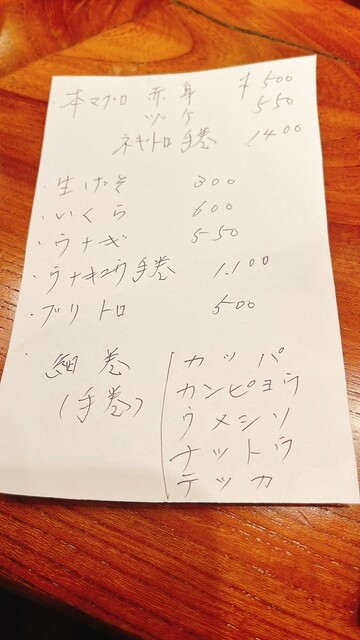 ・本マグロ 赤身 ¥500
ヅケ 550
ネギトロ手巻 1400
・生げそ 300
・いくら 600
・ウナギ 550
・ウナキュウ手巻 1.100
・ブリトロ 500
細巻 カッパ
(手巻) カンピョウ
ウメシソ
ナットウ
テッカ